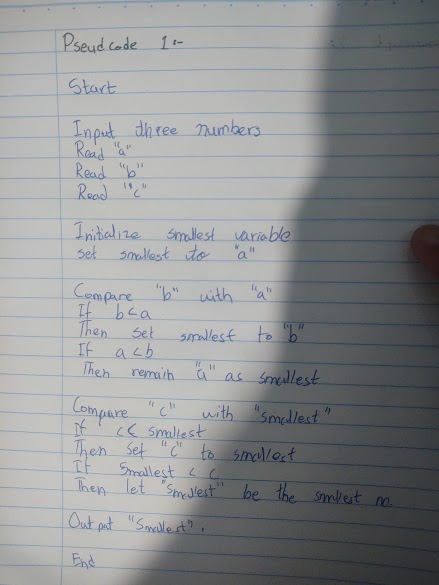 Pseudcode 1:-
Start
Input three numbers
Read "a"
Read "b"
Read "c"
Initialize smallest variable
Set smallest to "a"
Compare "b" with "a"
If b<a
Then set smallest to "b"
If a<b
Then remain "a" as smallest
Compare "c" with "smallest"
If c< smallest
Then set "c" to smallest
If Smallest < c
Then let "smallest" be the smallest no.
Output "Smallest".
End